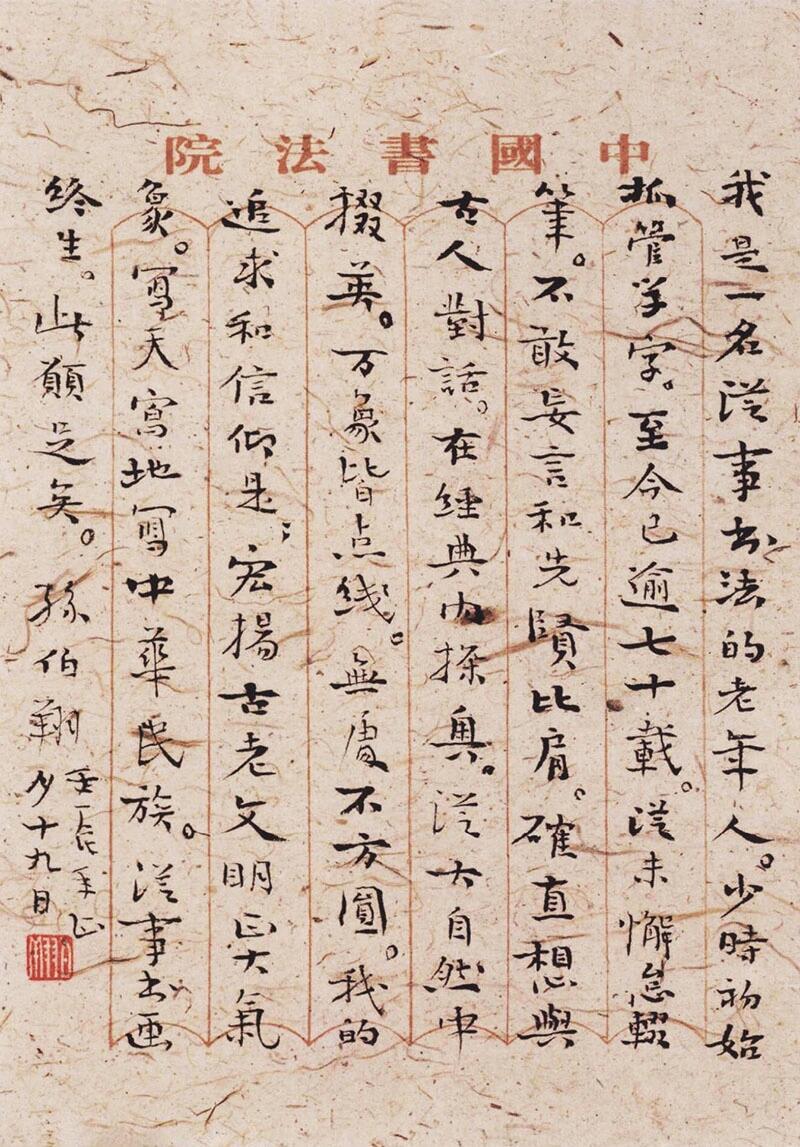 中國書法院
我是一名從事书法的老年人。少時初始
抓管学字。至今已逾七十載。從未懈怠輟
筆。不敢妄言和先賢比肩。確直想與
古人對話。在經典内探奥。從大自然中
掇英。万象皆点线。無處不方圓。我的
追求和信仰是；宏揚古老文明正大氣
象。寫天寫地寫中華民族。從事书画
终生。此願足矣。孫伯翔
壬辰年正
月十九日